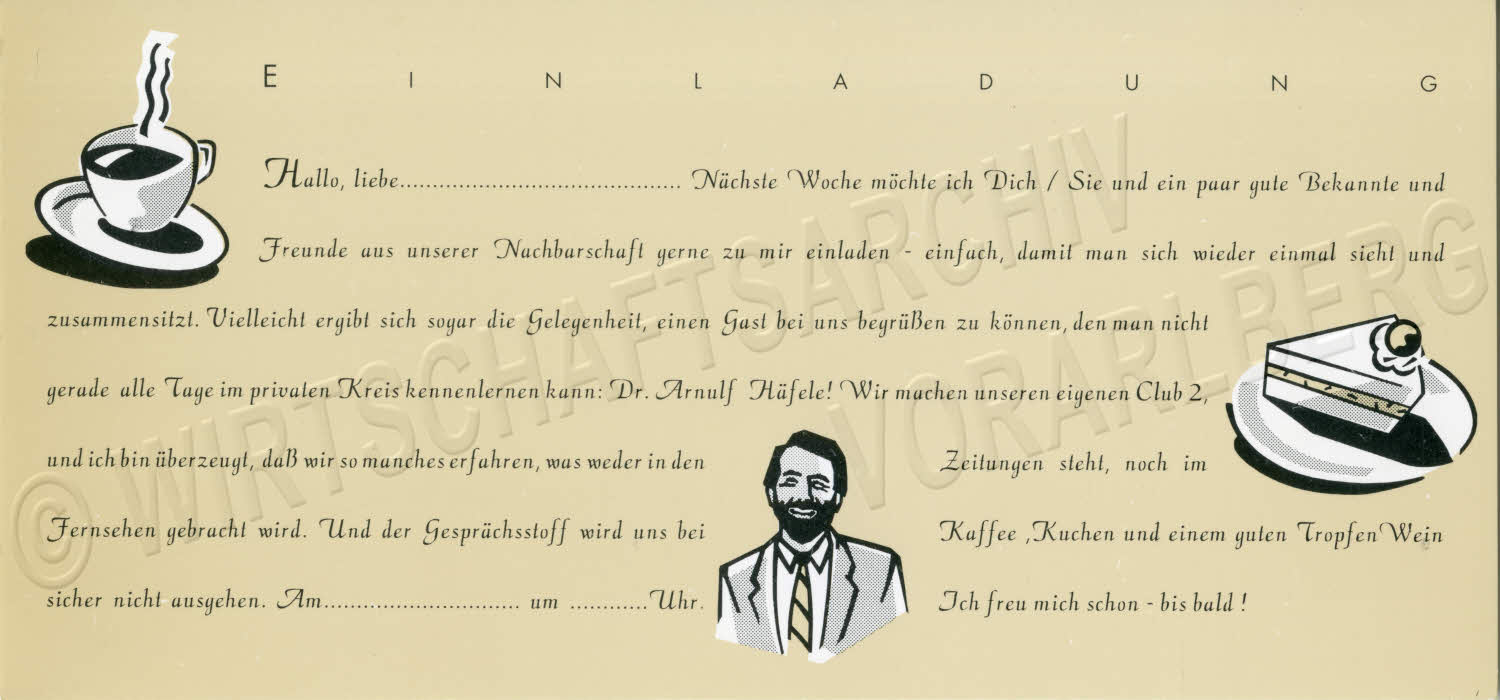 EINLADUNG
Hallo, liebe........................................... Nächste Woche möchte ich Dich / Sie und ein paar gute Bekannte und
Freunde aus unserer Nachbarschaft gerne zu mir einladen - einfach, damit man sich wieder einmal sieht und
zusammensitzt. Vielleicht ergibt sich sogar die Gelegenheit, einen Gast bei uns begrüßen zu können, den man nicht
gerade alle Tage im privaten Kreis kennenlernen kann: Dr. Arnulf Häfele! Wir machen unseren eigenen Club 2,
und ich bin überzeugt, daß wir so manches erfahren, was weder in den Zeitungen steht, noch im
Fernsehen gebracht wird. Und der Gesprächsstoff wird uns bei Kaffee ,Kuchen und einem guten Tropfen Wein
sicher nicht ausgehen. Am.............................. um ............Uhr. Ich freu mich schon - bis bald !
© WIRTSCHAFTSARCHIV VORARLBERG